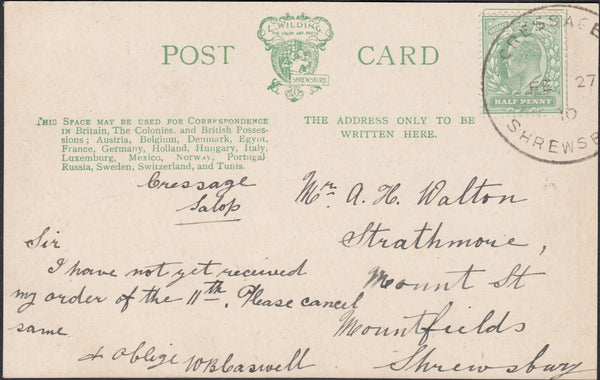 L. WILDING
THE SALOP ART PRESS
SHREWSBURY
POST CARD
THIS SPACE MAY BE USED FOR CORRESPONDENCE
in Britain, The Colonies, and British Posses-
sions; Austria, Belgium, Denmark, Egypt,
France, Germany, Holland, Hungary, Italy,
Luxemburg, Mexico, Norway, Portugal
Russia, Sweden, Switzerland, and Tunis.
THE ADDRESS ONLY TO BE
WRITTEN HERE.
HALF PENNY
CRESSAGE
FE 27
10
SHREWSB
Cressage
Salop
Sir
I have not yet received
my order of the 11th. Please cancel
same
& oblige W B Caswell
Mr. A. H. Walton
Strathmore,
Mount St
Mountfields
Shrewsbury